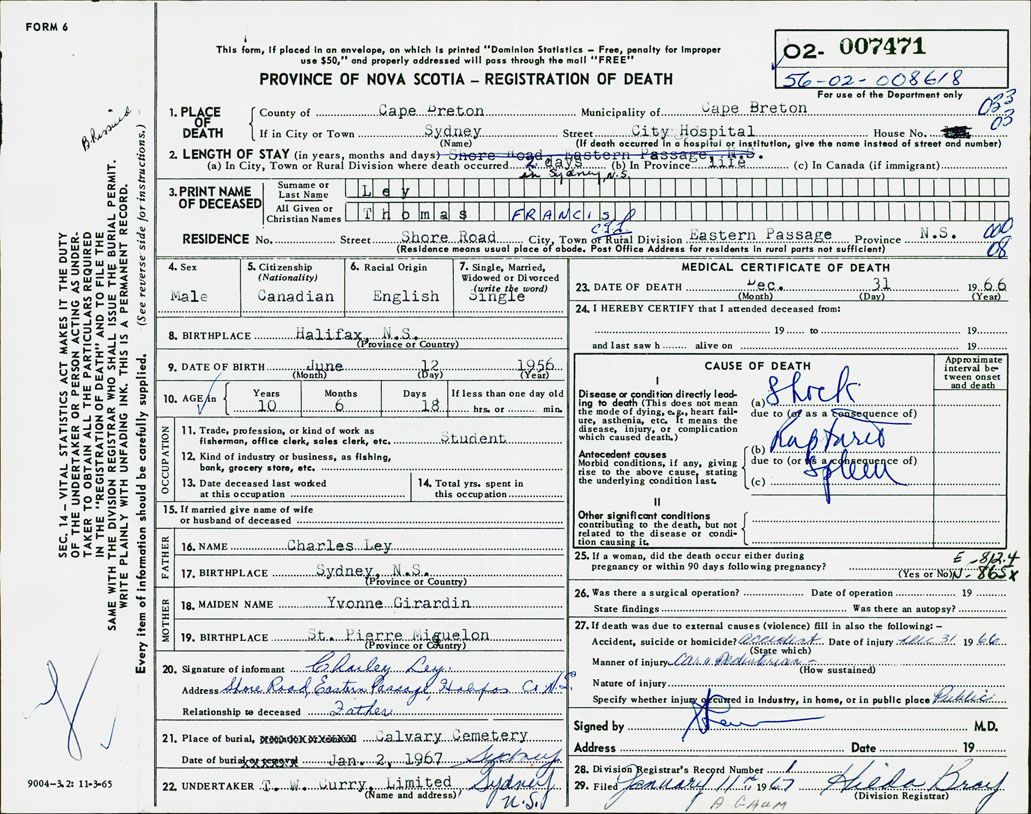 FORM 6
This form, if placed in an envelope, on which is printed "Dominion Statistics – Free, penalty for improper
use $50," and properly addressed will pass through the mail "FREE"
PROVINCE OF NOVA SCOTIA – REGISTRATION OF DEATH
02- 007471
56-02-008618
For use of the Department only
033
03
1. PLACE OF DEATH
County of Cape Breton Municipality of Cape Breton
If in City or Town Sydney Street City Hospital House No.
(Name) (If death occurred in a hospital or institution, give the name instead of street and number)
2. LENGTH OF STAY (in years, months and days) Shore Road, Eastern Passage, N.S.
(a) In City, Town or Rural Division where death occurred 2 days (b) In Province life (c) In Canada (if immigrant)
in Sydney, N.S.
3. PRINT NAME OF DECEASED
Surname or Last Name Ley
All Given or Christian Names Thomas FRANCIS
RESIDENCE No. Street Shore Road City, Town or Rural Division Eastern Passage Province N.S.
000
08
(Residence means usual place of abode. Post Office Address for residents in rural parts not sufficient)
4. Sex
Male
5. Citizenship
(Nationality)
Canadian
6. Racial Origin
English
7. Single, Married,
Widowed or Divorced
(write the word)
Single
8. BIRTHPLACE Halifax, N.S.
(Province or Country)
9. DATE OF BIRTH June 12 1956
(Month) (Day) (Year)
10. AGE in
Years Months Days If less than one day old
10 6 18 hrs. or min.
OCCUPATION
11. Trade, profession, or kind of work as
fisherman, office clerk, sales clerk, etc. Student
12. Kind of industry or business, as fishing,
bank, grocery store, etc.
13. Date deceased last worked
at this occupation
14. Total yrs. spent in
this occupation
15. If married give name of wife
or husband of deceased
FATHER
16. NAME Charles Ley
17. BIRTHPLACE Sydney, N.S.
(Province or Country)
MOTHER
18. MAIDEN NAME Yvonne Girardin
19. BIRTHPLACE St. Pierre Miquelon
(Province or Country)
20. Signature of informant Charley Ley.
Address Shore Road Eastern Passage, Halifax Co N.S.
Relationship to deceased Father
21. Place of burial, Calvary Cemetery
Date of burial Jan. 2, 1967 Sydney
22. UNDERTAKER T. W. Curry, Limited Sydney
(Name and address) N.S.
MEDICAL CERTIFICATE OF DEATH
23. DATE OF DEATH Dec. 31 1966
(Month) (Day) (Year)
24. I HEREBY CERTIFY that I attended deceased from:
19 to 19
and last saw h alive on 19
CAUSE OF DEATH
Approximate
interval between
onset
and death
I
Disease or condition directly leading
to death (This does not mean
the mode of dying, e.g., heart failure,
asthenia, etc. It means the
disease, injury, or complication
which caused death.)
(a) Shock
due to (or as a consequence of)
Antecedent causes
Morbid conditions, if any, giving
rise to the above cause, stating
the underlying condition last.
(b) Ruptured
due to (or as a consequence of)
Spleen
(c)
II
Other significant conditions
contributing to the death, but not
related to the disease or condition
causing it.
25. If a woman, did the death occur either during
pregnancy or within 90 days following pregnancy?
(Yes or No)
E-812.4
N-865X
26. Was there a surgical operation? Date of operation 19
State findings Was there an autopsy?
27. If death was due to external causes (violence) fill in also the following: –
Accident, suicide or homicide? accident Date of injury Dec 31 1966
(State which)
Manner of injury Car & Pedestrian –
(How sustained)
Nature of injury
Specify whether injury occurred in industry, in home, or in public place Public
Signed by M.D.
Address Date 19
28. Division Registrar's Record Number 1
29. Filed January 11th 1967 Hilda Bray
(Division Registrar)
SEC. 14 – VITAL STATISTICS ACT MAKES IT THE DUTY
OF THE UNDERTAKER OR PERSON ACTING AS UNDERTAKER
TO OBTAIN ALL THE PARTICULARS REQUIRED
IN THE "REGISTRATION OF DEATH" AND TO FILE THE
SAME WITH THE DIVISION REGISTRAR WHO SHALL ISSUE THE BURIAL PERMIT.
WRITE PLAINLY WITH UNFADING INK. THIS IS A PERMANENT RECORD.
Every item of information should be carefully supplied. (See reverse side for instructions.)
9004-3.2: 11-3-65